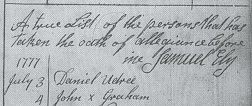 A true List of the persons that has
taken the oath of allegiance before
me Samuel Ely
1777
July 3 Daniel Udree
4 John x Graham